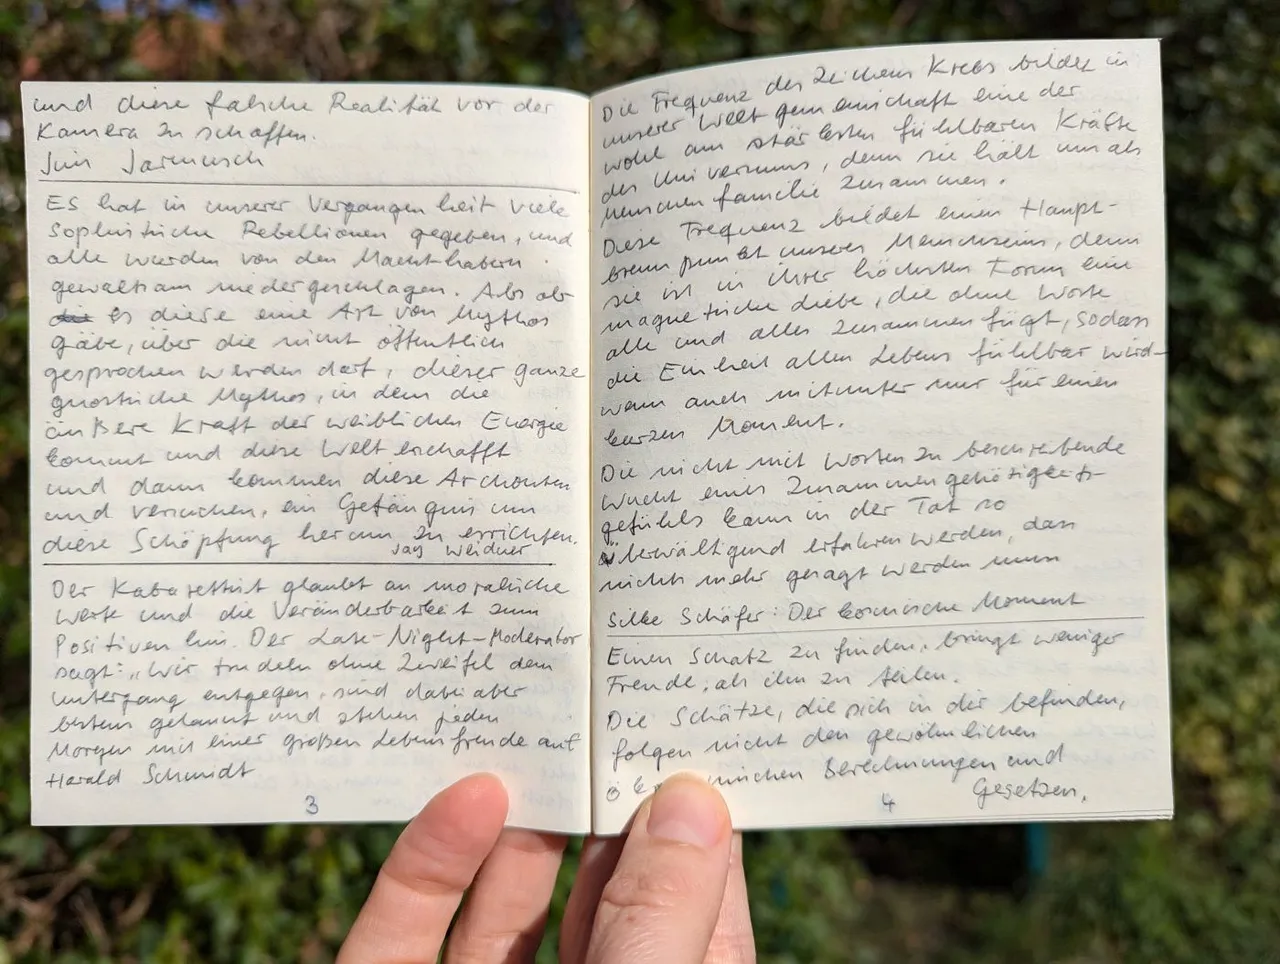 und diese falsche Realität vor der
Kamera zu schaffen.
Jim Jarmusch
Es hat in unserer Vergangenheit viele
Sophistische Rebellionen gegeben, und
alle wurden von den Machthabern
gewaltsam niedergeschlagen. Als ob
es diese eine Art von Mythos
gäbe, über die nicht öffentlich
gesprochen werden darf, dieser ganze
gnostische Mythos, in dem die
äußere Kraft der weiblichen Energie
kommt und diese Welt erschafft
und dann kommen diese Archonten
und versuchen, ein Gefängnis um
diese Schöpfung herum zu errichten.
Jay Weidner
Der Kabarettist glaubt an moralische
Werte und die Veränderbarkeit zum
Positiven hin. Der Late-Night-Moderator
sagt: „Wir trudeln ohne Zweifel dem
Untergang entgegen, sind dabei aber
bestens gelaunt und stehen jeden
Morgen mit einer großen Lebensfreude auf
Harald Schmidt
3
Die Frequenz des Zeichens Krebs bildet in
unserer Weltgemeinschaft eine der
wohl am stärksten fühlbaren Kräfte
des Universums, denn sie hält uns als
Menschenfamilie zusammen.
Diese Frequenz bildet einen Haupt-
brennpunkt unseres Menschseins, denn
sie ist in ihrer höchsten Form eine
magnetische Liebe, die ohne Worte
alle und alles zusammenfügt, sodass
die Einheit allen Lebens fühlbar wird-
wenn auch mitunter nur für einen
kurzen Moment.
Die nicht mit Worten zu beschreibende
Wucht eines Zusammengehörigkeits-
gefühls kann in der Tat so
überwältigend erfahren werden, dass
nichts mehr gesagt werden muss
Silke Schäfer: Der kosmische Moment
Einen Schatz zu finden, bringt weniger
Freude, als ihn zu teilen.
Die Schätze, die sich in dir befinden,
folgen nicht den gewöhnlichen
Berechnungen und
Gesetzen.
4